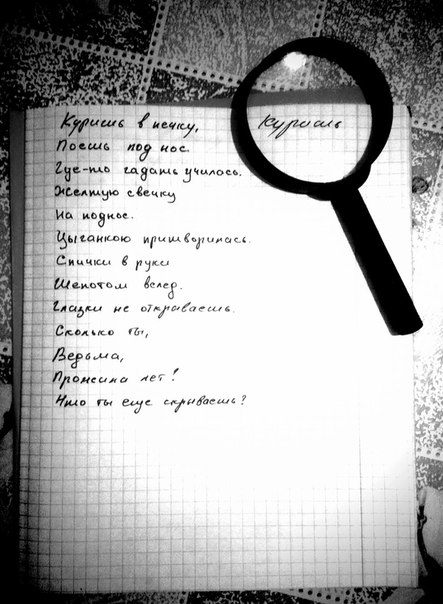 Куришь в печку,
Куришь
Поешь под нос.
Где-то гадать училась.
Желтую свечку
На поднос.
Цыганкою притворилась.
Спички в руки
Шепотом вслед.
Глазки не открываешь.
Сколько ты,
Ведьма,
Прожила лет!
Что ты еще скрываешь?